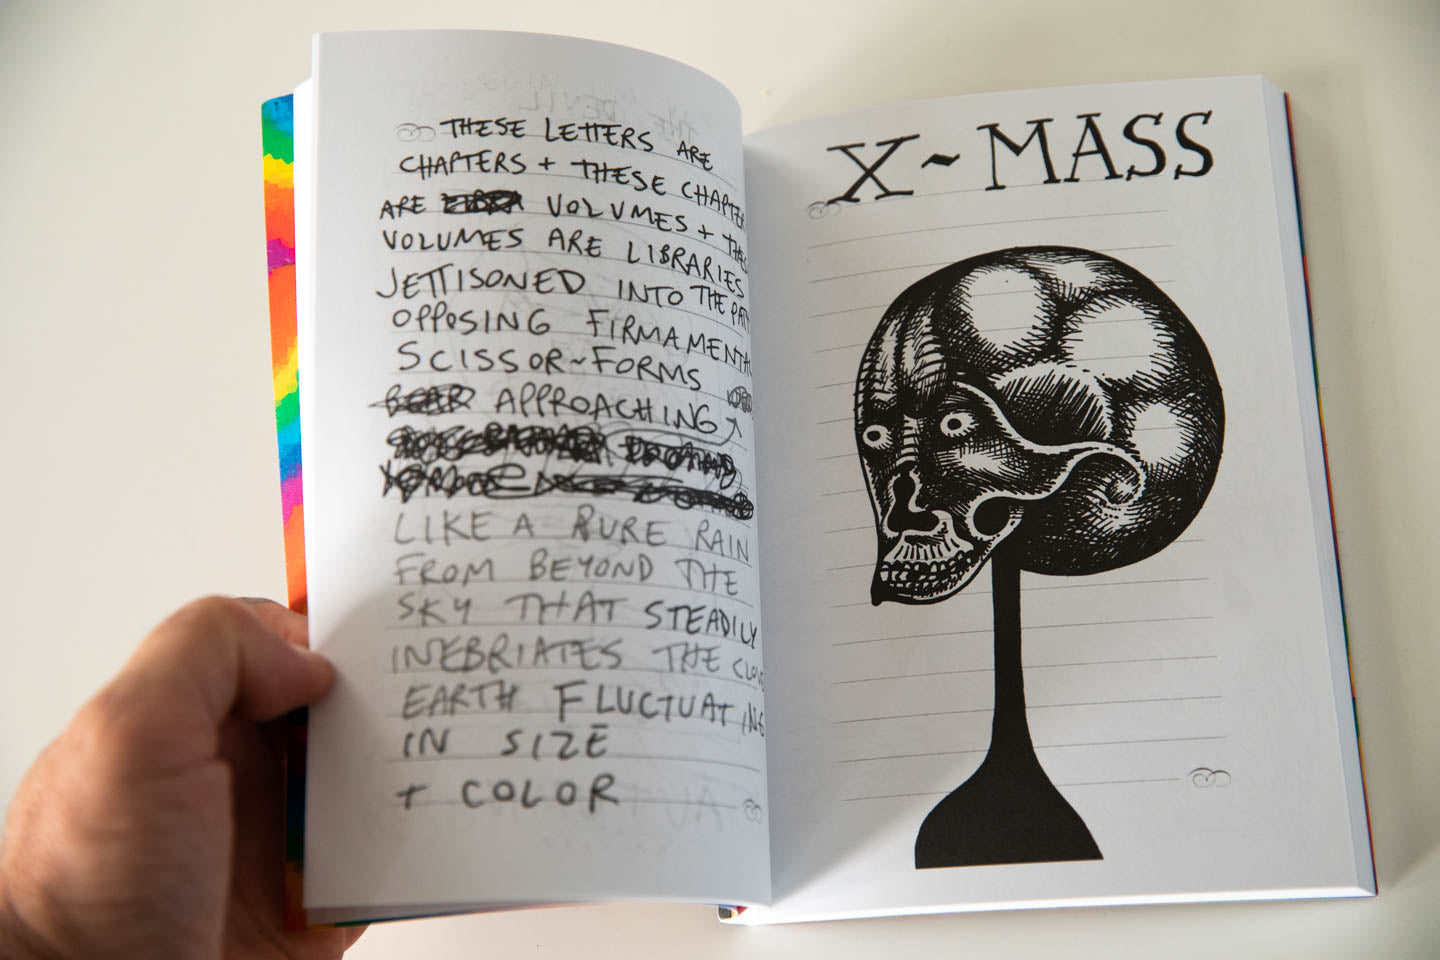 THESE LETTERS ARE
CHAPTERS + THESE CHAPTER
ARE VOLUMES + THES
VOLUMES ARE LIBRARIES
JETTISONED INTO THE PAT
OPPOSING FIRMAMENTA
SCISSOR~FORMS
APPROACHING
LIKE A PURE RAIN
FROM BEYOND THE
SKY THAT STEADILY
INEBRIATES THE
EARTH FLUCTUATING
IN SIZE
+ COLOR
X~MASS